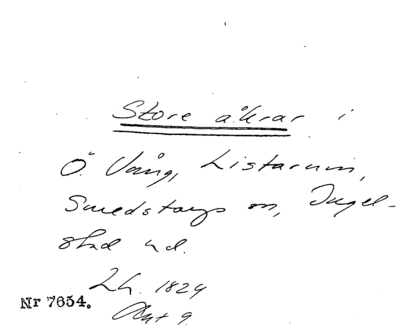 Store åkrar i
Ö Vång, Listarum,
Smedstorps sn, Ingel-
stad hd.
Lh. 1824
Ant 9
Nr 7654.